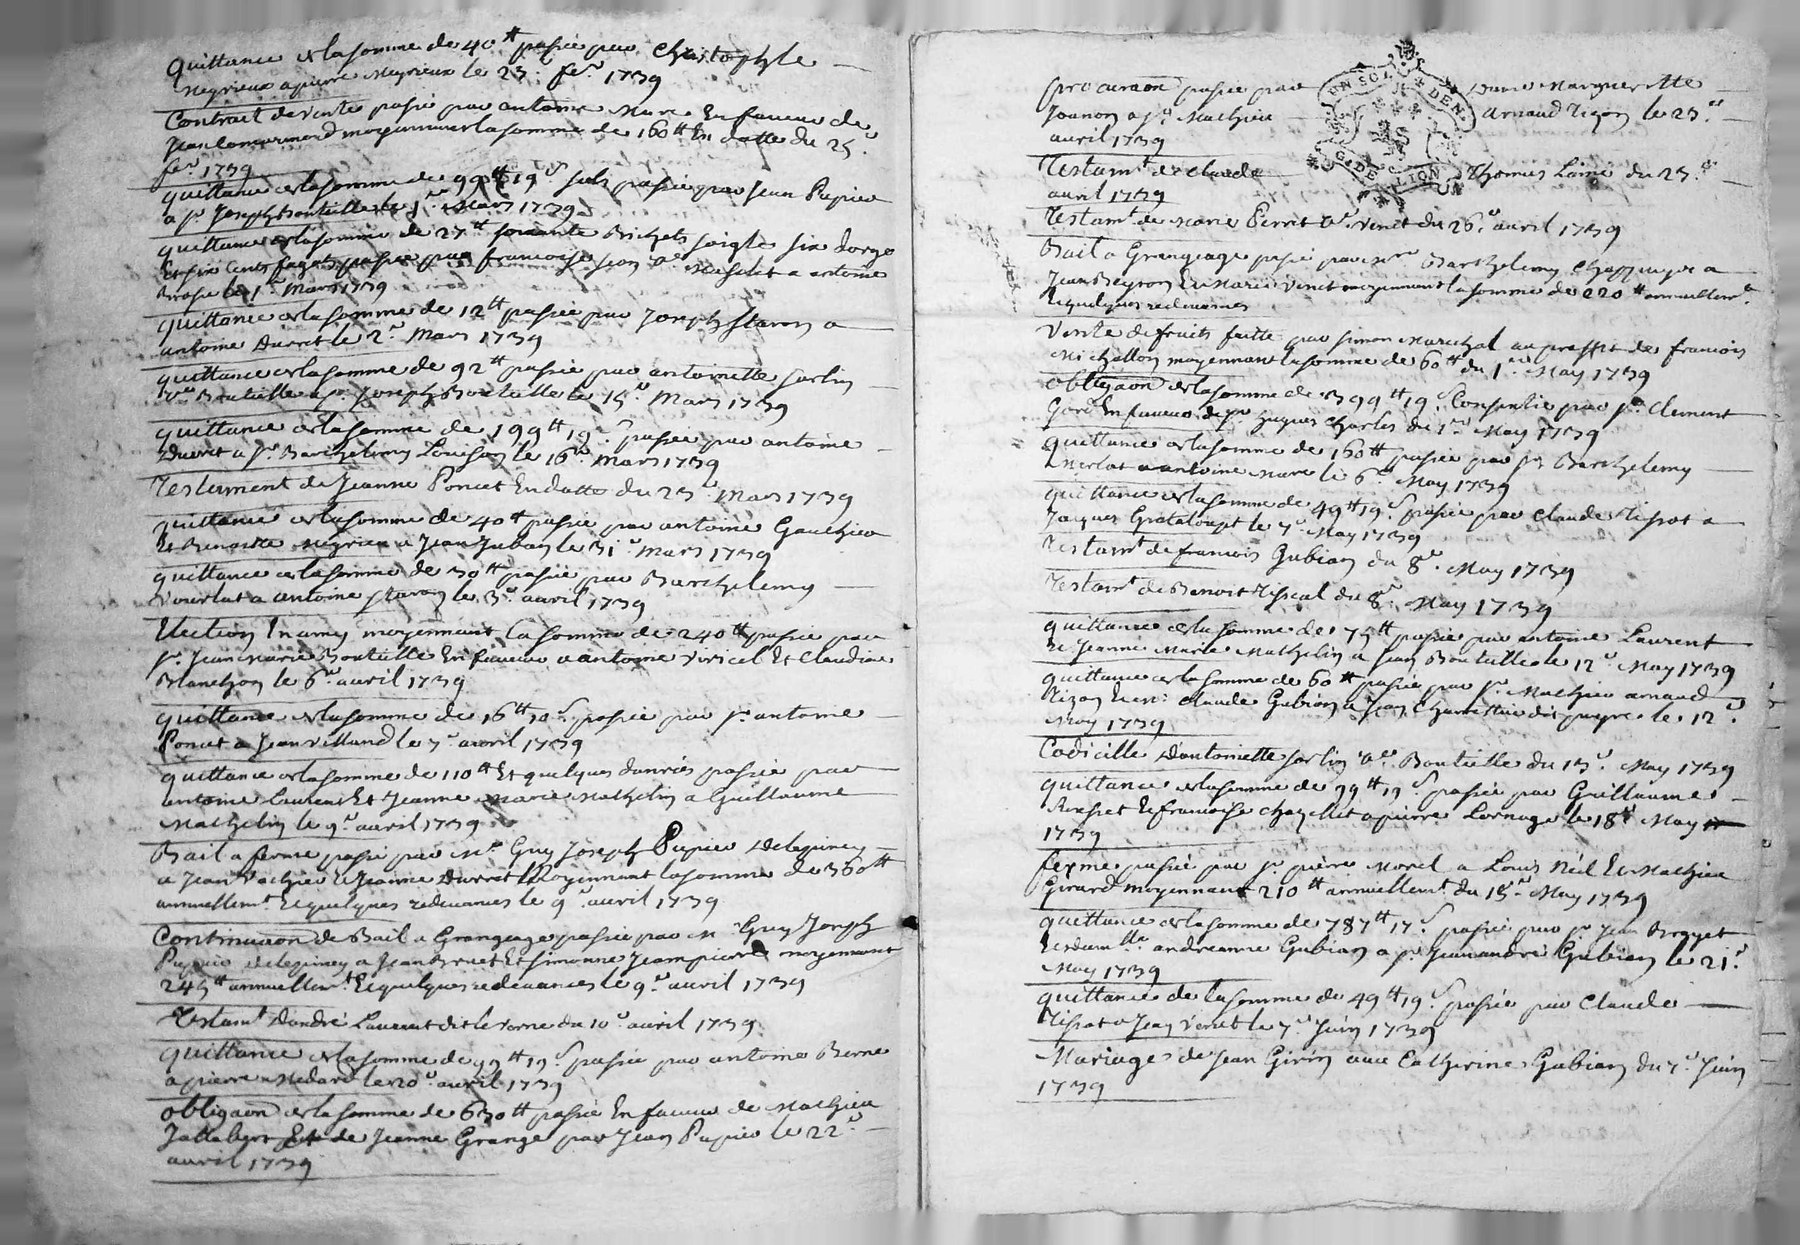 quittance de la somme de 40 ₶ passée par Christophle
Neyrieux a pierre Neyrieux le 23.e fer. 1739
Contrait de vente passé par antoine Mure En faveur de
moyennant la somme de 160 ₶ En datte du 25.e
fer. 1739
quittance de la somme de 99 ₶ 19 s passée par Jean Pupier
a sr. Joseph Bouteille le 1.er Mars 1739
quittance de la somme de 27 ₶ soixante Bichets soigle six dorge
Et six Cents fagots passée par francoise a antoine
Brosse le 1.er Mars 1739
quittance de la somme de 12 ₶ passée par Joseph Staron a
antoine Durret le 2.e Mars 1739
quittance de la somme de 92 ₶ passée par antoinette Sarlin
ve. Bouteille a sr. Joseph Bouteille le 15.e Mars 1739
quittance de la somme de 199 ₶ 19 s passée par antoine
Durret a sr. Barthelemy Louison le 16.e Mars 1739
Testament de Jeanne Poncet En datte du 23.e Mars 1739
quittance de la somme de 40 ₶ passée par antoine Gauthier
Et Benoitte Neyrieu a Jean Juban le 31.e Mars 1739
quittance de la somme de 30 ₶ passée par Barthelemy
a antoine Staron le 3.e avril 1739
Election Enamy moyennant la somme de 240 ₶ passée par
sr. Jean Marie Bouteille En faveur a antoine Viricel Et Claudine
Blanchon le 6.e avril 1739
quittance de la somme de 16 ₶ 10 s passée par sr. antoine
Poncet a Jean Villand le 7.e avril 1739
quittance de la somme de 110 ₶ Et quelques danrées passée par
antoine Laurent Et Jeanne Marie Mathelin a Guillaume
Mathelin le 9.e avril 1739
Bail a ferme passé par Mr. Guy Joseph Pupier Delepiney
a Jean Vachier Et Jeanne Durret Moyennant la somme de 360 ₶
annuellemt. Et quelques redevances le 9.e avril 1739
Continuaon de Bail a Grangeage passée par Mr. Guy Joseph
Pupier Delepiney a Jean Et Simonne Jeampierre moyennant
245 ₶ annuellemt. Et quelques redevances le 9.e avril 1739
Testamt. Dandré Laurent dit le Torne du 10.e avril 1739
quittance de la somme de 99 ₶ 19 s passée par antoine Berne
a pierre Medard le 20.e avril 1739
obligaon de la somme de 630 ₶ passée En faveur de Mathieu
Jallabert Et de Jeanne Grange par Jean Pupier le 22.e
avril 1739
procuraon passée par Dame Margueritte
Jounon a sr. Mathieu Arnaud Rizon le 23.e
avril 1739
Testamt. de Claude Thomas Lainé du 23.e
avril 1739
UN SOL 4 DEN
G. DE LION
Testamt. de Marie Perret ve. Venet du 26.e avril 1739
Bail a Grangeage passé par Barthelemy a
Jean Peyron Et Marie Venet moyennant la somme de 220 ₶ annuellemt.
Et quelques redevances
Vente de fruits faitte par Simon Marechal au proffit de francois
Michallon moyennant la somme de 60 ₶ du 1.er May 1739
obligaon de la somme de 399 ₶ 19 s Consentie par sr. Clement
Gord En faveur de sr. hugues Charles du 1.er May 1739
quittance de la somme de 160 ₶ passée par sr. Barthelemy
a antoine Mure le 6.e May 1739
quittance de la somme de 49 ₶ 19 s passée par Claude Tissot a
Jacques Grataloupt le 7.e May 1739
Testamt. de francois Gubian du 8.e May 1739
Testamt. de Benoit Fiscal du 8.e May 1739
quittance de la somme de 75 ₶ passée par antoine Laurent
Et Jeanne Marie Mathelin a Jean Bouteille le 12.e May 1739
quittance de la somme de 60 ₶ passée par sr. Mathieu arnaud
Rizon Claude Gubian a Jean dit le 12.e
May 1739
Codicille D'antoinette Sarlin ve. Bouteille du 15.e May 1739
quittance de la somme de 99 ₶ 19 s passée par Guillaume
Et francoise a pierre Lornage le 18.e May
1739
ferme passée par sr. pierre Morel a Louis Néel Et Mathieu
Girard moyennant 210 ₶ annuellemt. du 18.e May 1739
quittance de la somme de 787 ₶ 17 s passée par sr. Jean
Et andréanne Gubian a sr. Jean andré Gubian le 21.e
May 1739
quittance de la somme de 49 ₶ 19 s passée par Claude
Tissot a Jean Venet le 7.e Juin 1739
Mariage de Jean Girin avec Catherine Gubian du 7.e Juin
1739